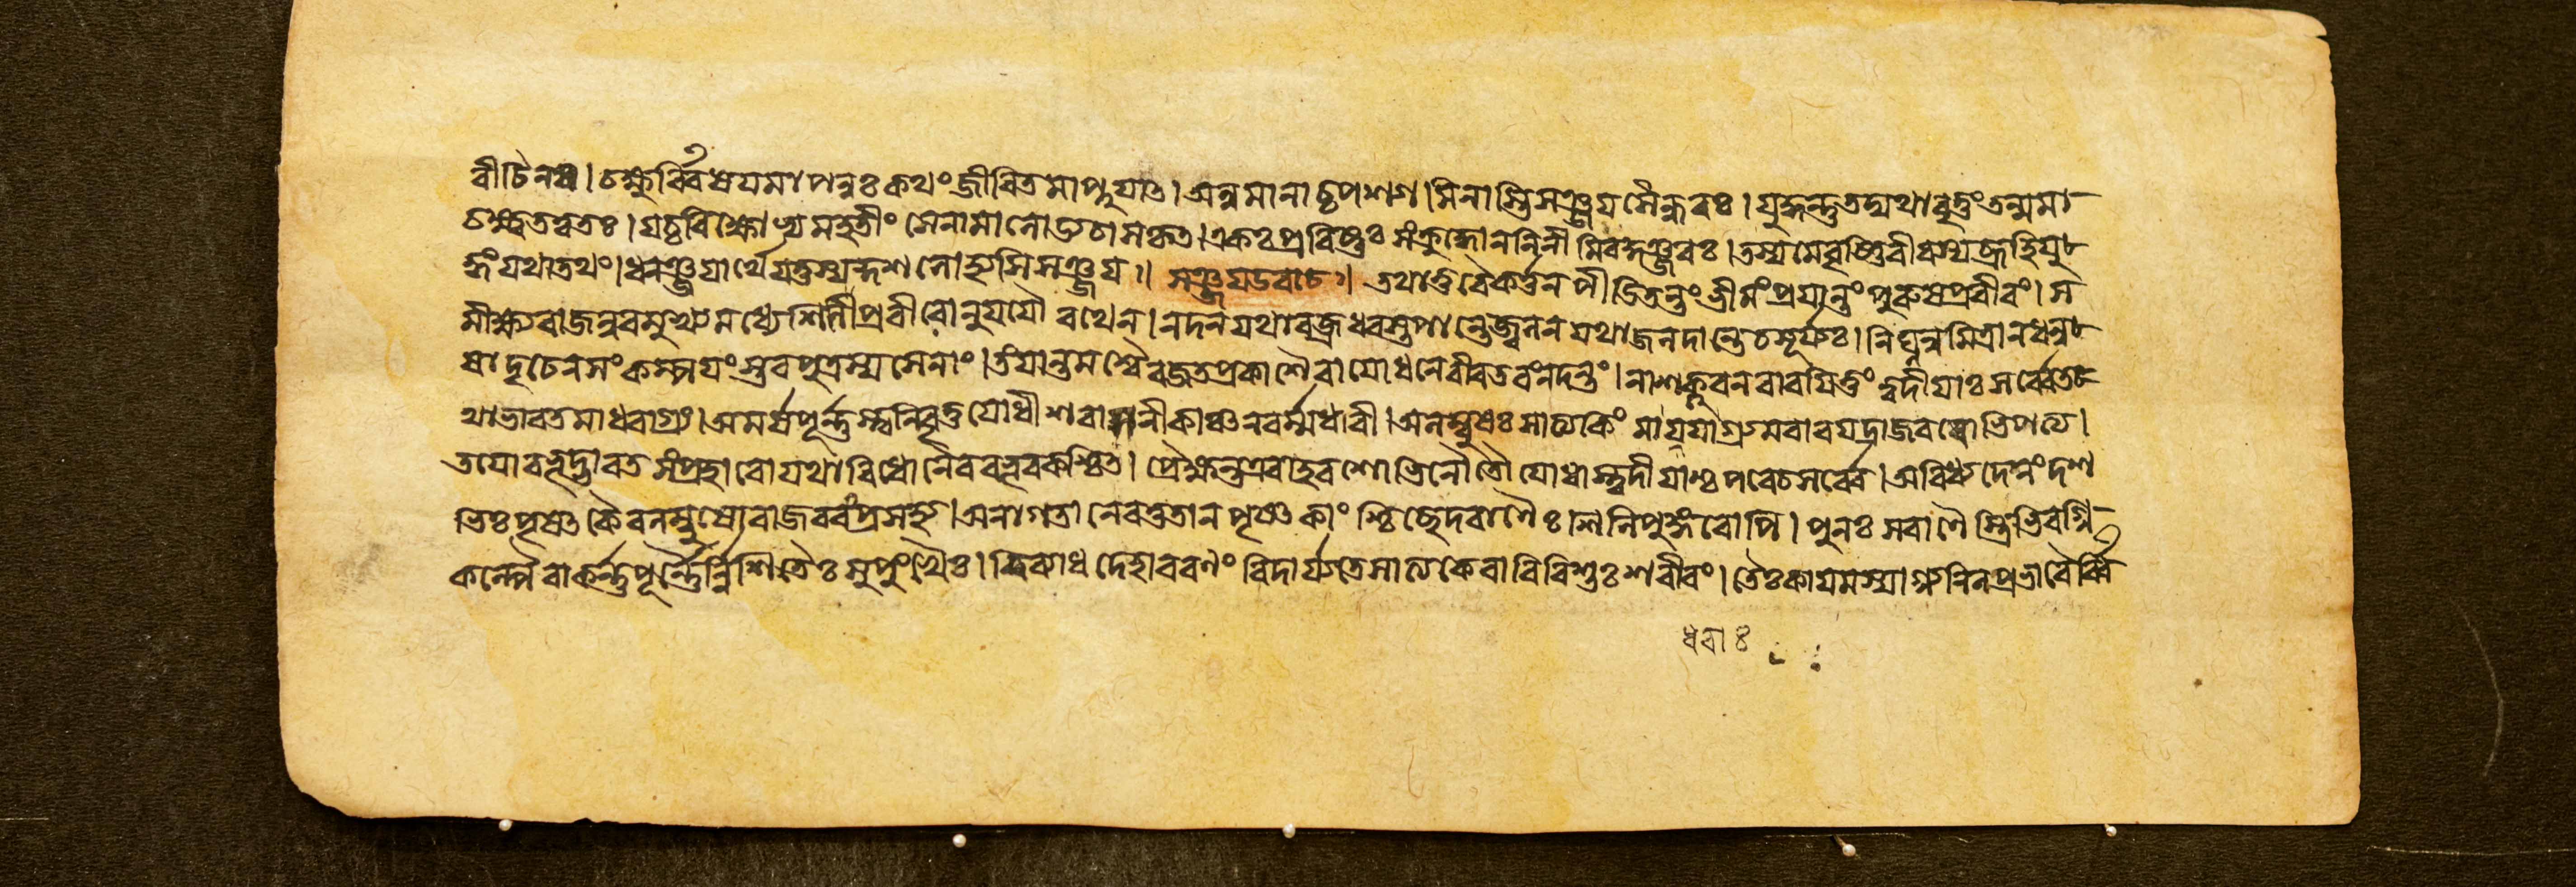 বীচিনষ। চক্ষুর্ব্বিষয়মাপন্নঃ কথং জীবিতমাপ্নুযাত্। অনুমানাচ্চ পশ্যামি নাস্তি সঞ্জয সৈন্ধবঃ। যুদ্ধন্তু তদ্যথাবৃত্তং তন্মমা-
চক্ষ্ব তত্বতঃ। যচ্চ বিক্ষোভ্য মহতীং সেনামালোড্য চাসকৃত্। একঃ প্রবিষ্টঃ সংক্রুদ্ধো নলিনীমিব কুঞ্জরঃ। তস্য মে বৃষ্ণিবীরস্য ব্রূহি যু-
দ্ধং যথাতথং। ধনঞ্জযার্থে যত্তস্য কুশলোহ্যসি সঞ্জয॥ সঞ্জয উবাচ॥ তথা তু বৈকর্ত্তনপীডিতন্তং ভীমং প্রযান্তং পুরুষপ্রবীরং। স
মীক্ষ্য রাজন্নরমুখ্যমধ্যে শিনিপ্রবীরোনুযযৌ রথেন। নদন্যথা বজ্রধরস্তপান্তে জ্বলন্যথা জলদান্তে চ সূর্য্যঃ। নিঘ্নন্নমিত্রান্ধনু-
ষা দৃঢেন সংকম্পযংস্তব পুত্রস্য সেনাং। তং যান্তমশ্বৈ রজতপ্রকাশৈরাযোধনে বীরতরং নদন্তং। নাশক্নুবন্বারযিতুং ত্বদীযাঃ সর্ব্বে র-
থা ভারত মাধবাগ্র্যং। অমর্ষপূর্ণস্ত্বনিবৃত্তযোধী শরাসনী কাঞ্চনবর্ম্মধারী। অলম্বুষঃ সাত্যকিং মাধবাগ্র্যমবারযদ্রাজবরোভিপত্য।
তযোরভূদ্ভারত সংপ্রহারো যথাবিধো নৈব বভূব কশ্চিত্। প্রৈক্ষন্ত এবাহবশোভিনৌ তৌ যোধাস্ত্বদীযাশ্চ পরে চ সর্ব্বে। অবিধ্যদেনং দশ
ভিঃ পৃষৎকৈরলম্বুষো রাজবরঃ প্রসহ্য। অনাগতানেব তু তান্ পৃষৎকাংশ্চিচ্ছেদ বাণৈঃ শিনিপুঙ্গবোপি। পুনঃ স বাণৈস্ত্রিভিরগ্নি-
কল্পৈরাকর্ণপূর্ণৈর্ন্নিশিতৈঃ সুপুংখৈঃ। বিব্যাধ দেহাবরণং বিদার্য্য তে সাত্যকেরাবিবিশুঃ শরীরং। তৈঃ কাযমস্যাগ্ন্যনিলপ্রভাবৈর্ব্বি
ধরাঃ